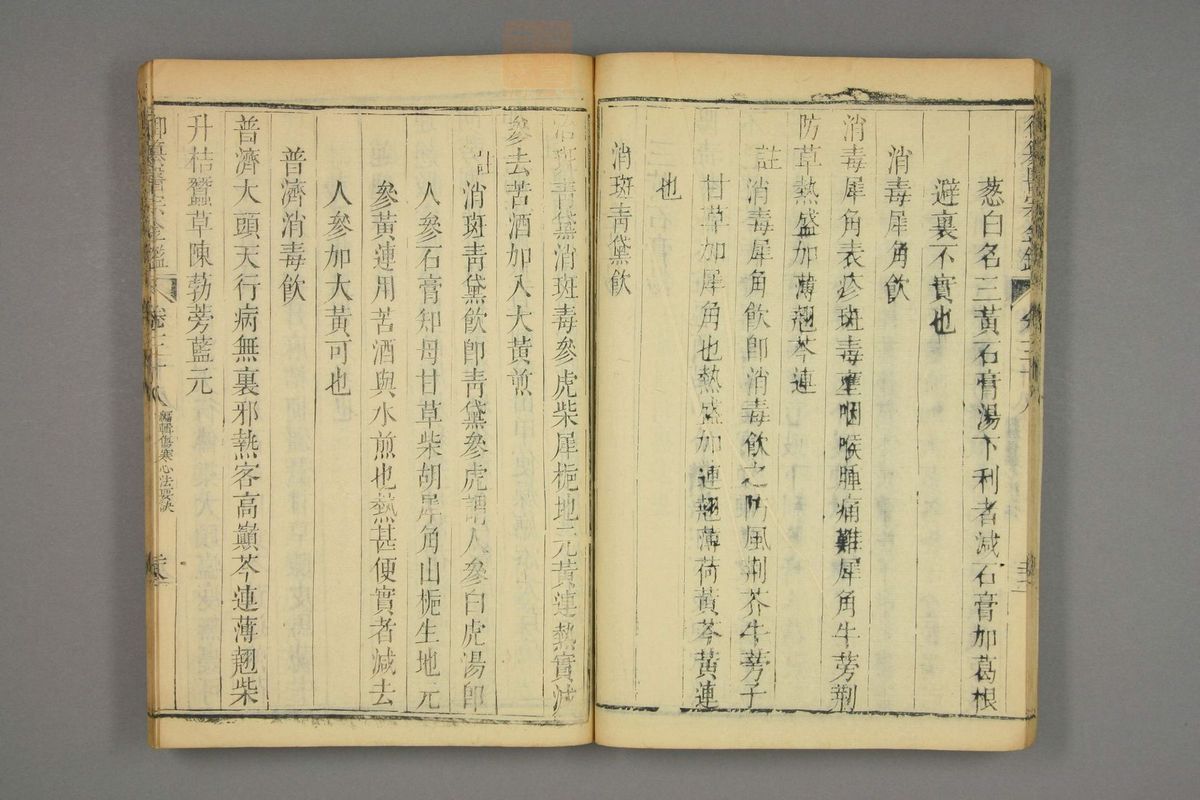 葱白名三黃石膏湯下利者減石膏加葛根
避裏不實也
消毒犀角飲
消毒犀角表疹斑毒壅咽喉腫痛難犀角牛蒡荆
防草熱盛加薄翹芩連
註消毒犀角飲卽消毒飲之防風荆芥牛蒡子
甘草加犀角也熱盛加連翹薄荷黃芩黃連
也
消斑青黛飲
消斑青黛消斑毒參虎柴犀梔地元黃連熱實減
參去苦酒加入大黃煎
註消斑青黛飲卽青黛參虎謂人參白虎湯卽
人參石膏知母甘草柴胡犀角山梔生地元
參黃連用苦酒與水煎也熱甚便實者減去
人參加大黃可也
普濟消毒飲
普濟大頭天行病無裏邪熱客高巔芩連薄翹柴
升桔蠶草陳勃蒡藍元
御纂醫宗金鑑 卷三十八 編輯傷寒心法要訣